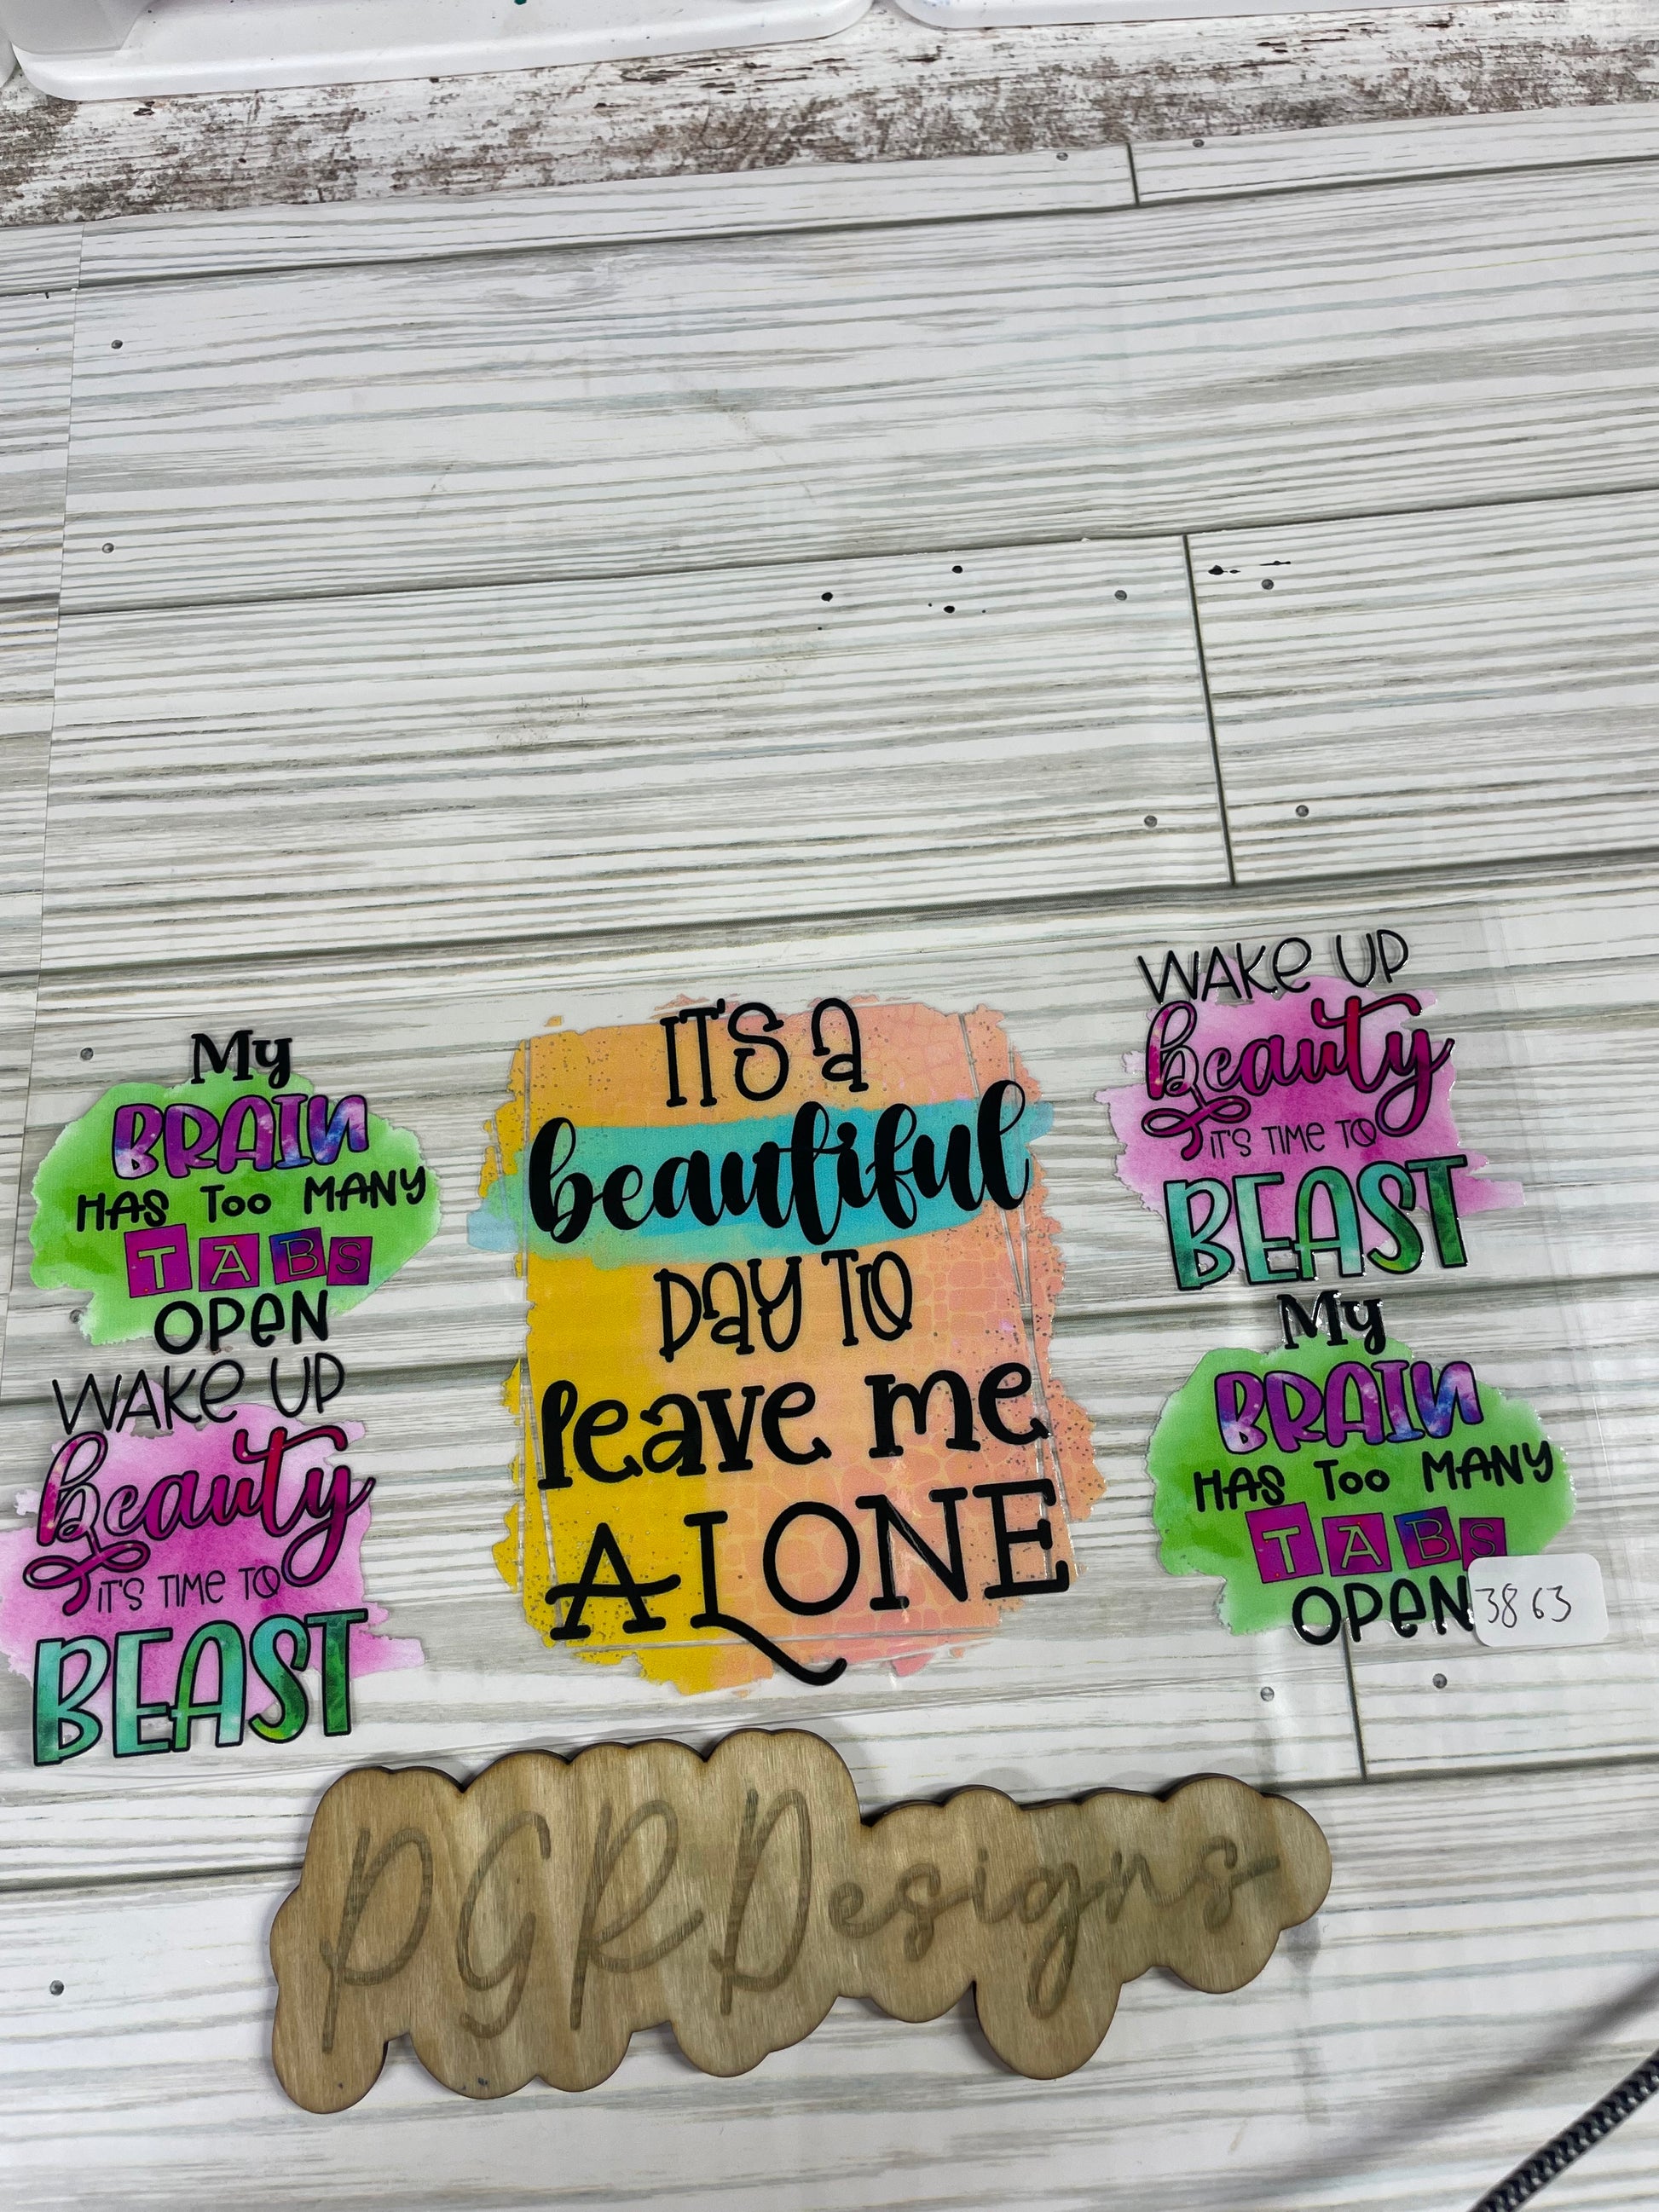 My
BRAIN
HAS Too MANY
TABS
OPEN
WAKE UP
beauty
IT'S TIME TO
BEAST
IT'S a
beautiful
Day TO
leave me
ALONE
WAKE UP
beauty
IT'S TIME TO
BEAST
My
BRAIN
HAS Too MANY
TABS
OPEN
3863
PGRDesigns